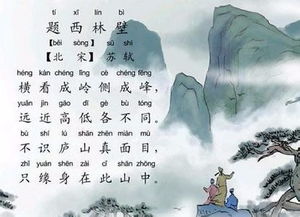 tí xī lín bì
题西林壁
[běi sòng] sū shì
【北 宋】 苏轼
héng kàn chéng lǐng cè chéng fēng
横看成岭侧成峰，
yuǎn jìn gāo dī gè bù tóng
远近高低各不同。
bù shí lú shān zhēn miàn mù
不识庐山真面目，
zhǐ yuán shēn zài cǐ shān zhōng
只缘身在此山中。